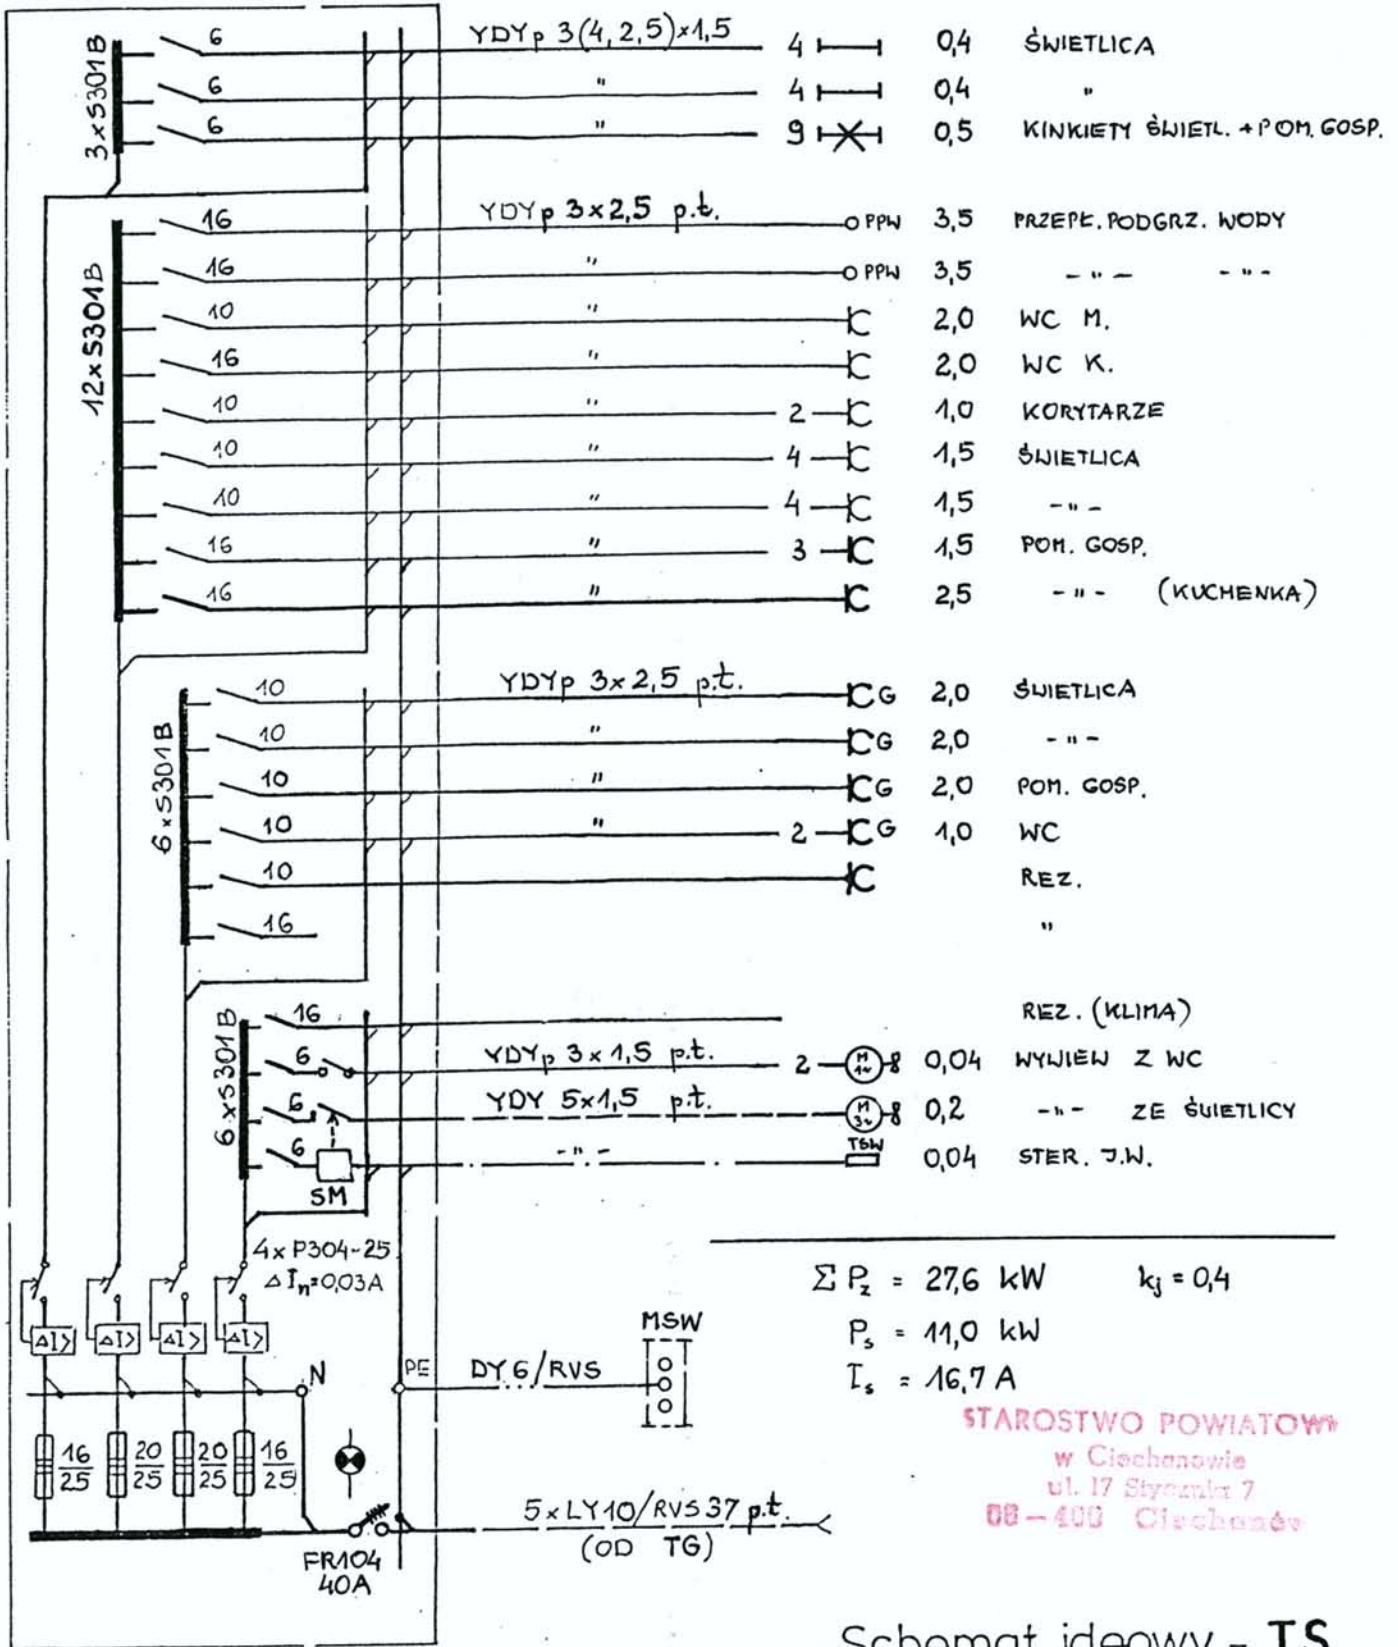 3×S301B
6 YDYp 3(4,2,5)×1,5 4 0,4 ŚWIETLICA
6 " 4 0,4 "
6 " 9 0,5 KINKIETY ŚWIETL. + POM. GOSP.
12×S301B
16 YDYp 3×2,5 p.t. PPW 3,5 PRZEPŁ. PODGRZ. WODY
16 " PPW 3,5 - " - - " -
10 " 2,0 WC M.
16 " 2,0 WC K.
10 " 2 1,0 KORYTARZE
10 " 4 1,5 ŚWIETLICA
10 " 4 1,5 - " -
16 " 3 1,5 POM. GOSP.
16 " 2,5 - " - (KUCHENKA)
6×S301B
10 YDYp 3×2,5 p.t. G 2,0 ŚWIETLICA
10 " G 2,0 - " -
10 " G 2,0 POM. GOSP.
10 " 2 G 1,0 WC
10 REZ.
16 "
6×S301B
16 REZ. (KLIMA)
6 YDYp 3×1,5 p.t. 2 M 1~ 0,04 WYWIEW Z WC
6 YDY 5×1,5 p.t. M 3~ 0,2 - " - ZE ŚWIETLICY
6 - " - TSW 0,04 STER. J.W.
SM
4×P304-25
ΔIn=0,03A
ΔI> ΔI> ΔI> ΔI>
Σ Pz = 27,6 kW kj = 0,4
Ps = 11,0 kW
Is = 16,7 A
MSW
N PE DY6/RVS
16/25 20/25 20/25 16/25
5×LY10/RVS37 p.t.
(OD TG)
FR104
40A
STAROSTWO POWIATOWE
w Ciechanowie
ul. 17 Stycznia 7
06-400 Ciechanów
Schemat ideowy - TS